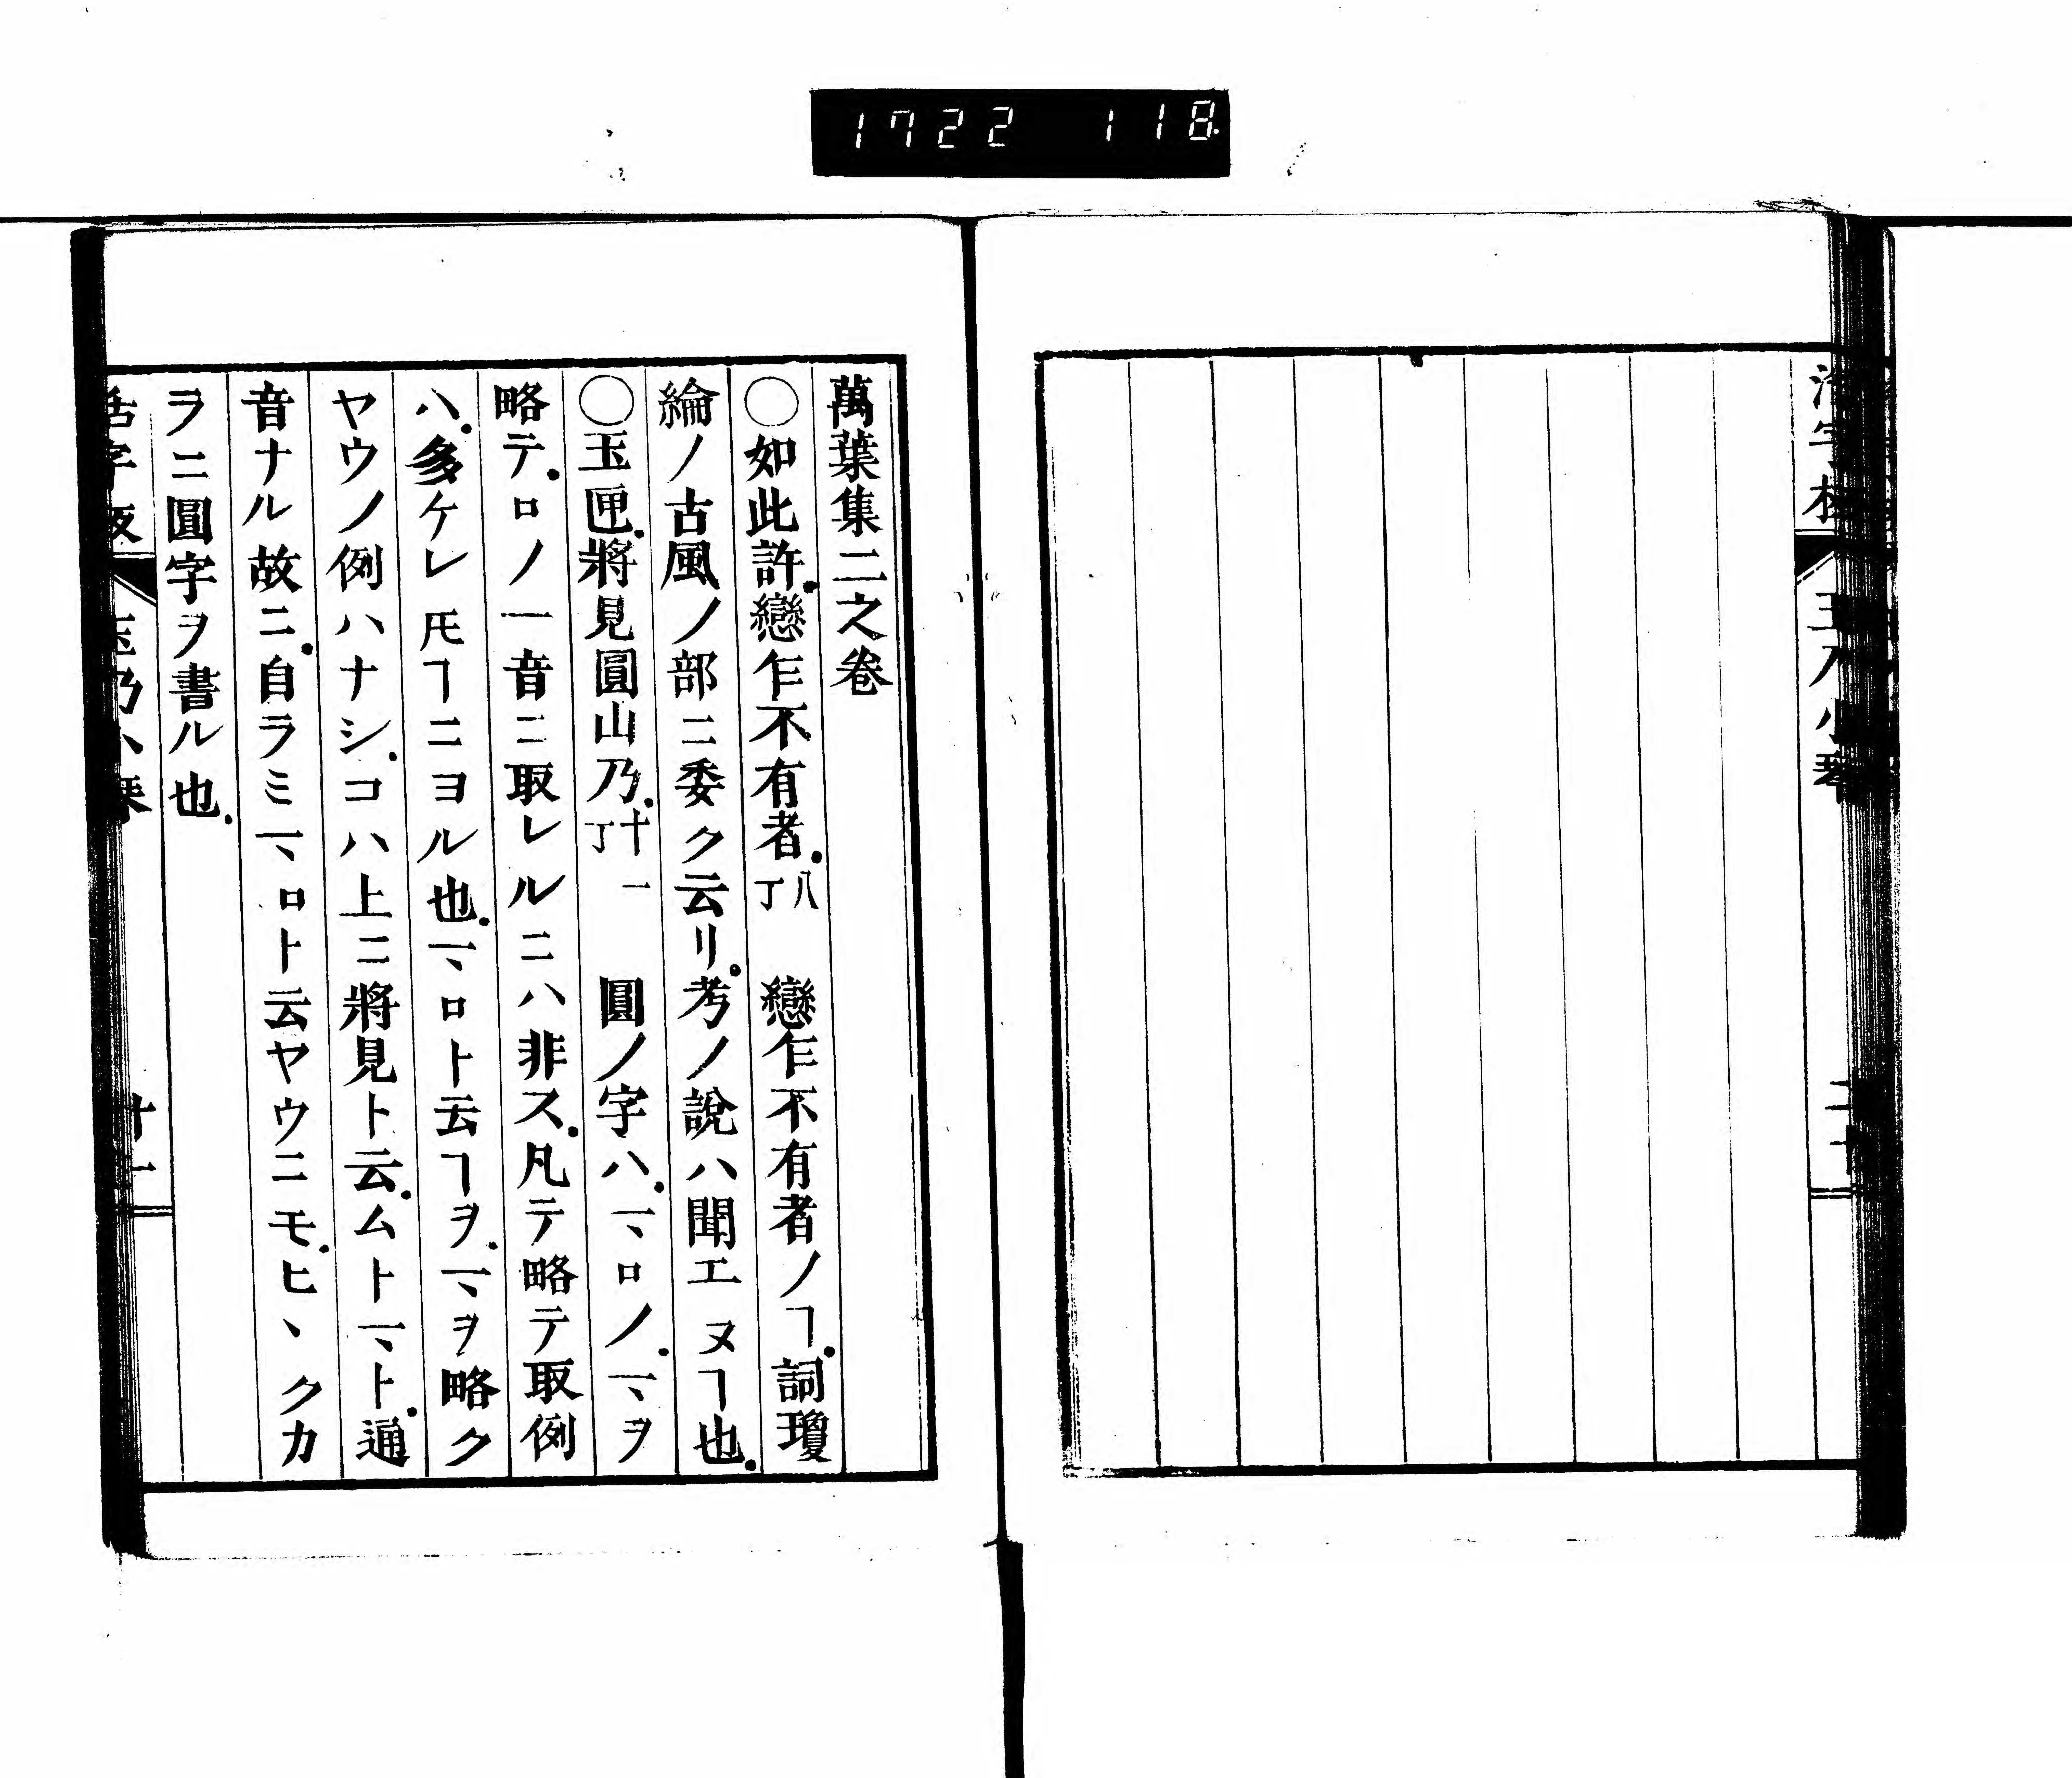 1722 118.
萬葉集二之卷
○如此許.戀乍不有者.八丁 戀乍不有者ノヿ.詞瓊
綸ノ古風ノ部ニ委ク云リ.考ノ說ハ聞エヌヿ也.
○玉匣.將見圓山乃.十一丁 圓ノ字ハ.マロノ.マヲ
略テ.ロノ一音ニ取レルニハ非ス.凡テ略テ取例
ハ.多ケレ𪜈ヿニヨル也.マロト云ヿヲ.マヲ略ク
ヤウノ例ハナシ.コハ上ニ將見ト云.ムトマト.通
音ナル故ニ.自ラミマロト云ヤウニモ.ヒヽクカ
ラニ圓字ヲ書ル也.